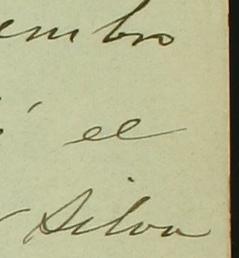 embro
el
Silva